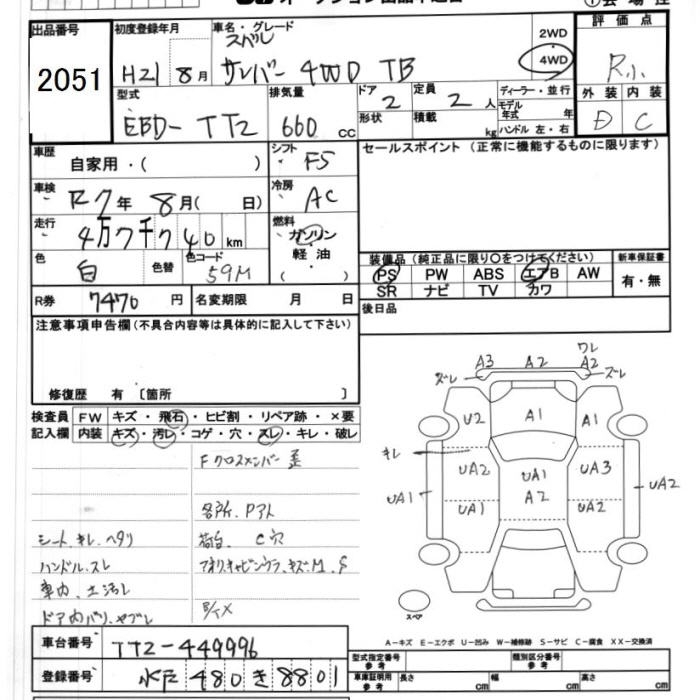 出品番号
2051
初度登録年月
H21 8月
車名・グレード
スバル
サンバー 4WD TB
2WD
4WD
評価点
R小
外装 内装
D C
型式
EBD-TT2
排気量
660 cc
ドア
2
形状
定員
2 人
積載 kg
ディーラー・並行
モデル年式 年
ハンドル 左・右
車歴
自家用・( )
シフト
F5
セールスポイント (正常に機能するものに限ります)
車検
R7年 8月( 日)
冷房
AC
走行
4万7千740km
燃料
ガソリン
軽油
( )
色
白
色替
色コード
59M
装備品 (純正品に限り〇をつけてください)
新車保証書
PS PW ABS エアB AW
有・無
SR ナビ TV カワ
R券
7470 円
名変期限 月 日
後日品
注意事項申告欄(不具合内容等は具体的に記入して下さい)
修復歴 有 〔箇所 〕
検査員記入欄
FW キズ・飛石・ヒビ割・リペア跡・×要
内装 キズ・汚レ・コゲ・穴・スレ・キレ・破レ
Fクロスメンバー 歪
各所、Pアト
シート、キレ、ヘタリ
荷台、C穴
ハンドル、スレ
アオリ、キャビンウラ、キズM、S
車内、土汚レ
ドア内バリ、ヤブレ
ワレ
A3 A2 A2
ズレ ズレ
U2 A1 A1
キレ
UA2 UA1 UA3
UA1 A2 UA2
UA1 UA2
スペア
A-キズ E-エクボ U-凹み W-補修跡 S-サビ C-腐食 XX-交換済
車台番号
TT2-449996
登録番号
水戸 480 き 8801
型式指定番号
参考
類別区分番号
参考
車庫証明用
参考
長さ cm 幅 cm 高さ cm